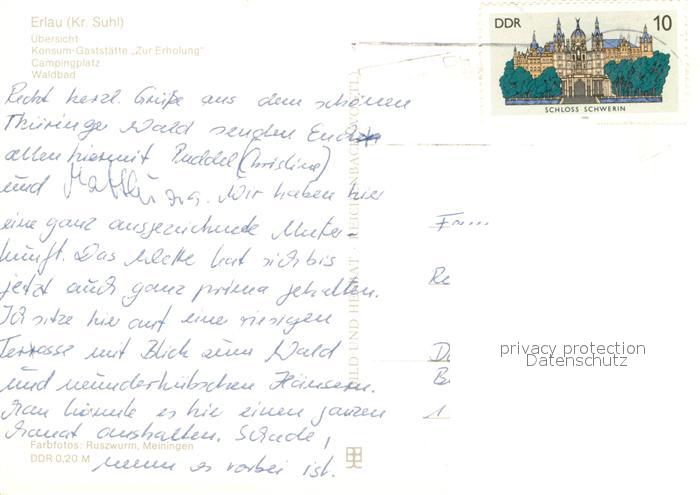 Erlau (Kr. Suhl)
Übersicht
Konsum-Gaststätte „Zur Erholung"
Campingplatz
Waldbad
DDR 10
SCHLOSS SCHWERIN
Recht herzl. Grüße aus dem schönen
Thüringer Wald senden Euch
allen hiermit Puddel (Christine)
und
Wir haben hier
eine ganz ausgezeichnete Unter-
kunft. Das Wetter hat sich bis
jetzt auch ganz prima gehalten.
Ich sitze hier auf einer riesigen
Terrasse mit Blick zum Wald
und wunderhübschen Häusern.
Man könnte es hier einen ganzen
Monat aushalten. Schade,
wenn es vorbei ist.
Farbfotos: Ruszwurm, Meiningen
DDR 0,20 M
BILD UND HEIMAT · REICHENBACH (VOGTL)
privacy protection
Datenschutz